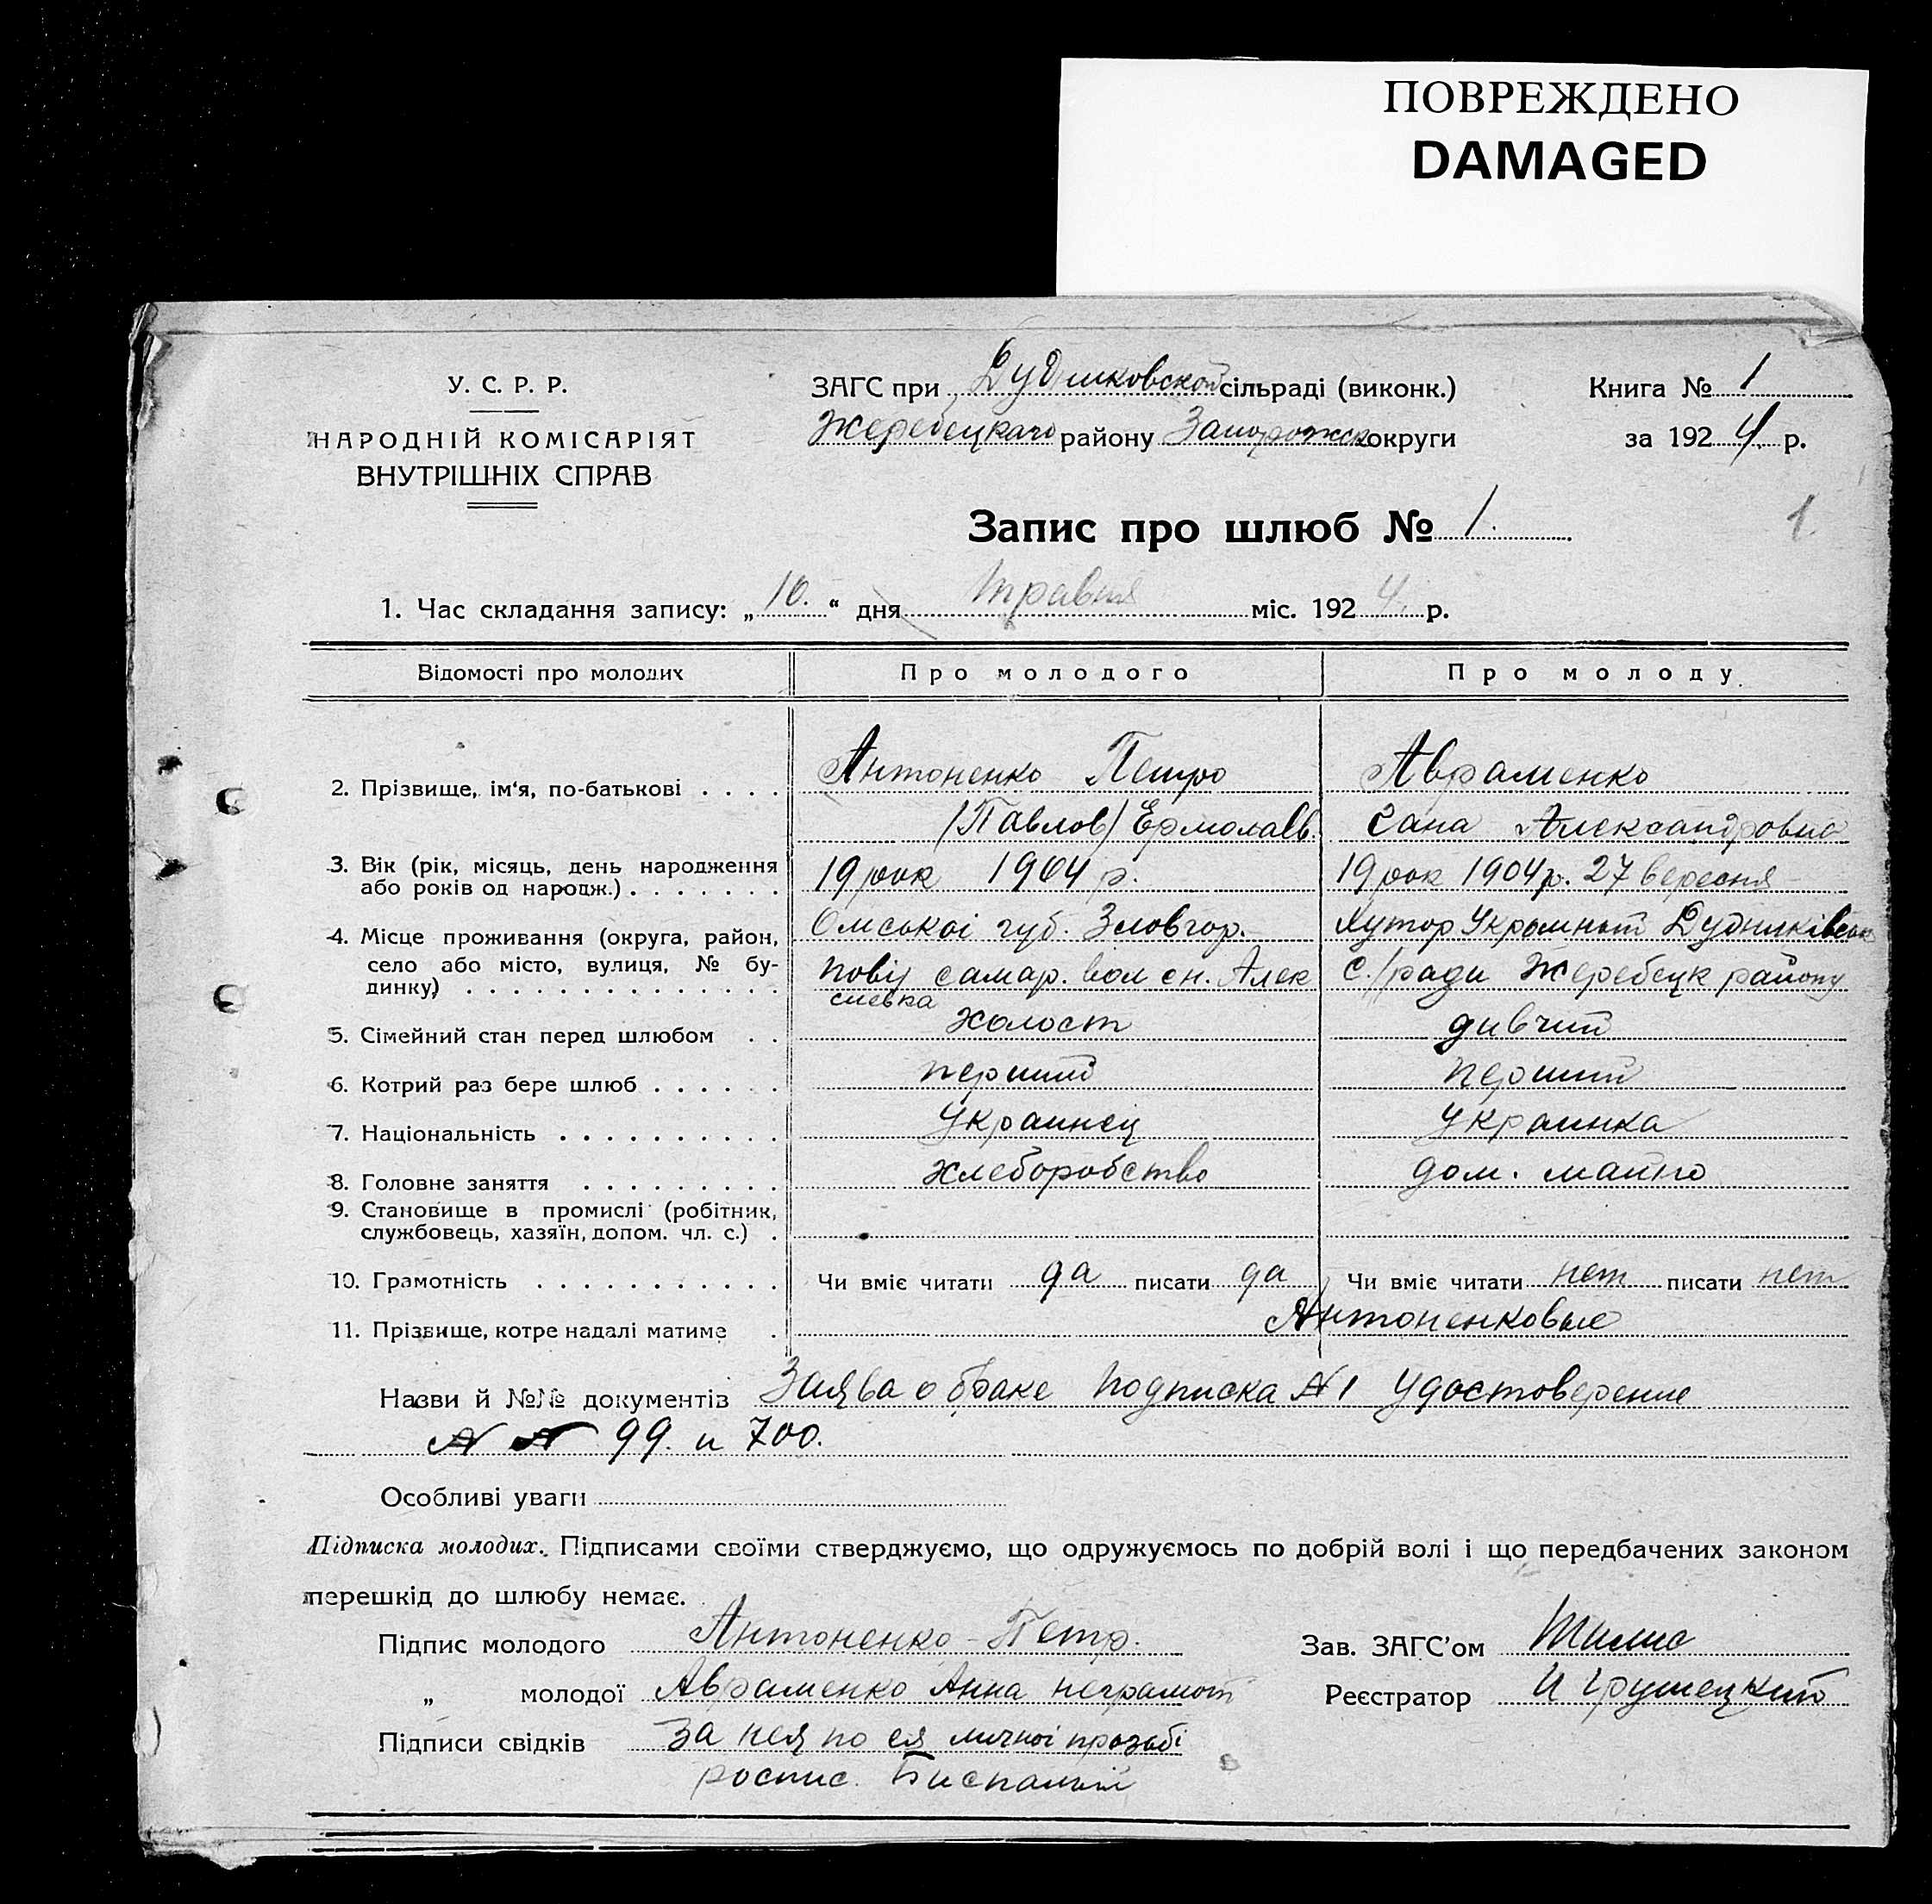 ПОВРЕЖДЕНО
DAMAGED
У. С. Р. Р.
НАРОДНІЙ КОМІСАРІЯТ
ВНУТРІШНІХ СПРАВ
ЗАГС при Дудниковской сільраді (виконк.)
Жеребецкаго району Запорожск округи
Книга № 1
за 1924 р.
Запис про шлюб № 1.
1.
1. Час складання запису: „10.“ дня травня міс. 1924. р.
Відомості про молодих Про молодого Про молоду
2. Прізвище, ім'я, по-батькові . . . . Антоненко Петро Авраменко
(Павлов) Ермолаев. Александровна
3. Вік (рік, місяць, день народження
або років од народж.) . . . . . . . 19 рок 1904 р. 19 рок 1904 р. 27 вересня
4. Місце проживання (округа, район,
село або місто, вулиця, № бу-
динку) . . . . . . . . . . . . . .
Омськоі губ. Хутор Дудниківськ
повіу самар. вол Алек С./ради Жеребецк району
сиевка
5. Сімейний стан перед шлюбом . . холост дивчит
6. Котрий раз бере шлюб . . . . . . перший перший
7. Національність . . . . . . . . . . Украинец Украинка
8. Головне заняття . . . . . . . . . хлеборобство дом.
9. Становище в промислі (робітник,
службовець, хазяїн, допом. чл. с.) .
10. Грамотність . . . . . . . . . . . Чи вміє читати да писати да Чи вміє читати нет писати нет
11. Прізвище, котре надалі матиме . Антоненковые
Назви й №№ документів Заява о браке Подписка N 1 Удостоверение
N N 99. и 700.
Особливі уваги
Підписка молодих. Підписами своїми стверджуємо, що одружуємось по добрій волі і що передбачених законом
перешкід до шлюбу немає.
Підпис молодого Антоненко-Петр. Зав. ЗАГС'ом
„ молодої Авраменко Анна неграмот Реєстратор И Грушецкий
Підписи свідків За нея по ея личноі прозьбі
роспис.